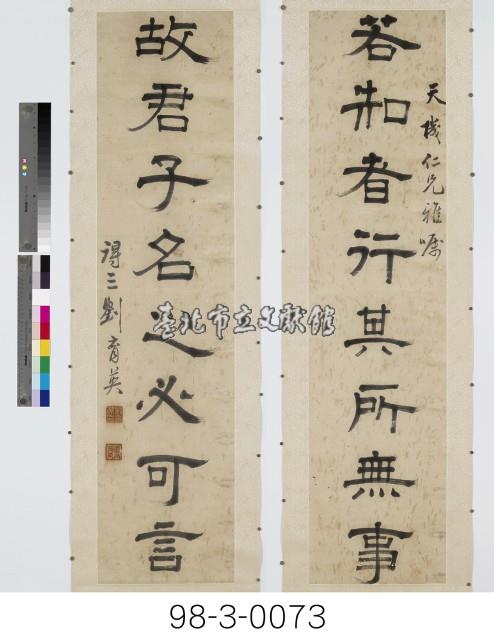 若知者行其所無事
天機仁兄雅囑
故君子名之必可言
得三劉育英
臺北市立文獻館
98-3-0073